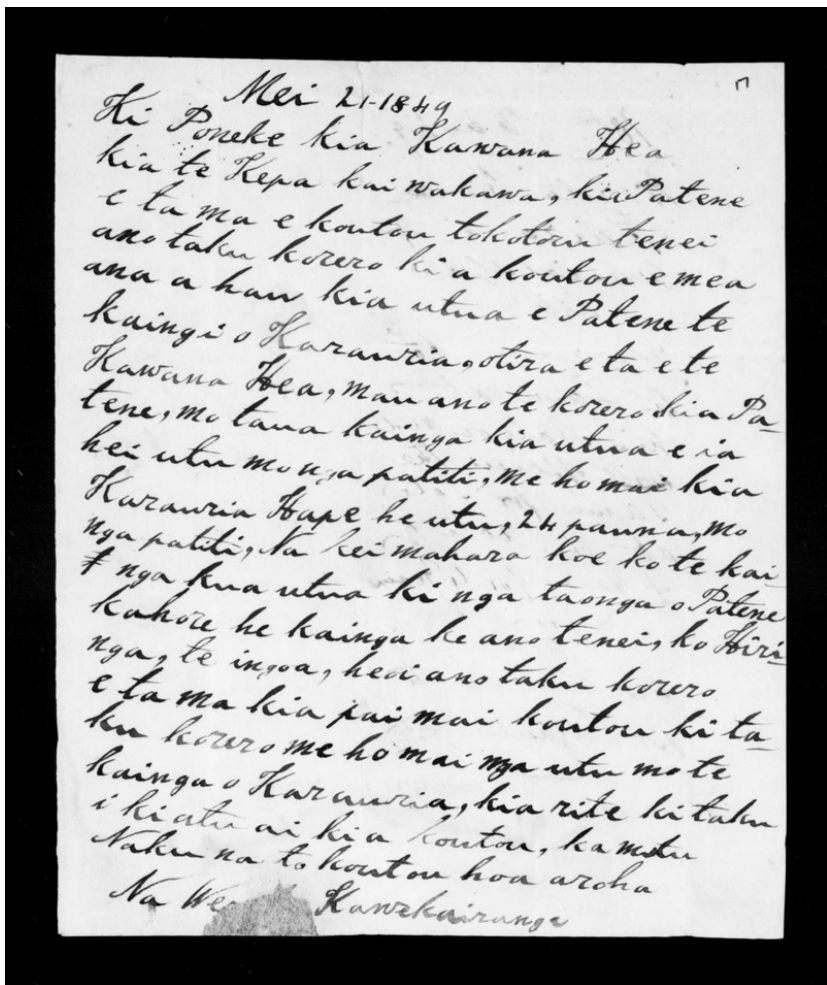 Mei 21-1849
Ki Poneke kia Kawana Hea
kia te Kepa kai wakawa, kia Patene
e ta ma e koutou tokotoru tenei
ano taku korero ki a koutou e mea
ana a hau kia utua e Patene te
kaingi o Karauria, otira e ta e te
Kawana Hea, mau ano te korero kia Pa-
tene, mo taua kainga kia utua e ia
hei utu mo nga patiti, me ho mai kia
Karauria Hape he utu, 24 pauna, mo
nga patiti, Na kei mahara koe ko te kai-
nga kua utua ki nga taonga o Patene
kahore he kainga ke ano tenei, ko Hiri-
nga, te ingoa, heoi ano taku korero
e ta ma kia pai mai koutou ki ta-
ku korero me ho mai nga utu mo te
kainga o Karauria, kia rite ki taku
i ki atu ai ki a koutou, ka mutu
Naku na to koutou hoa aroha
Na We